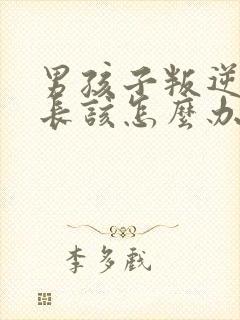 男孩子叛逆
長該怎麼办
李多戲